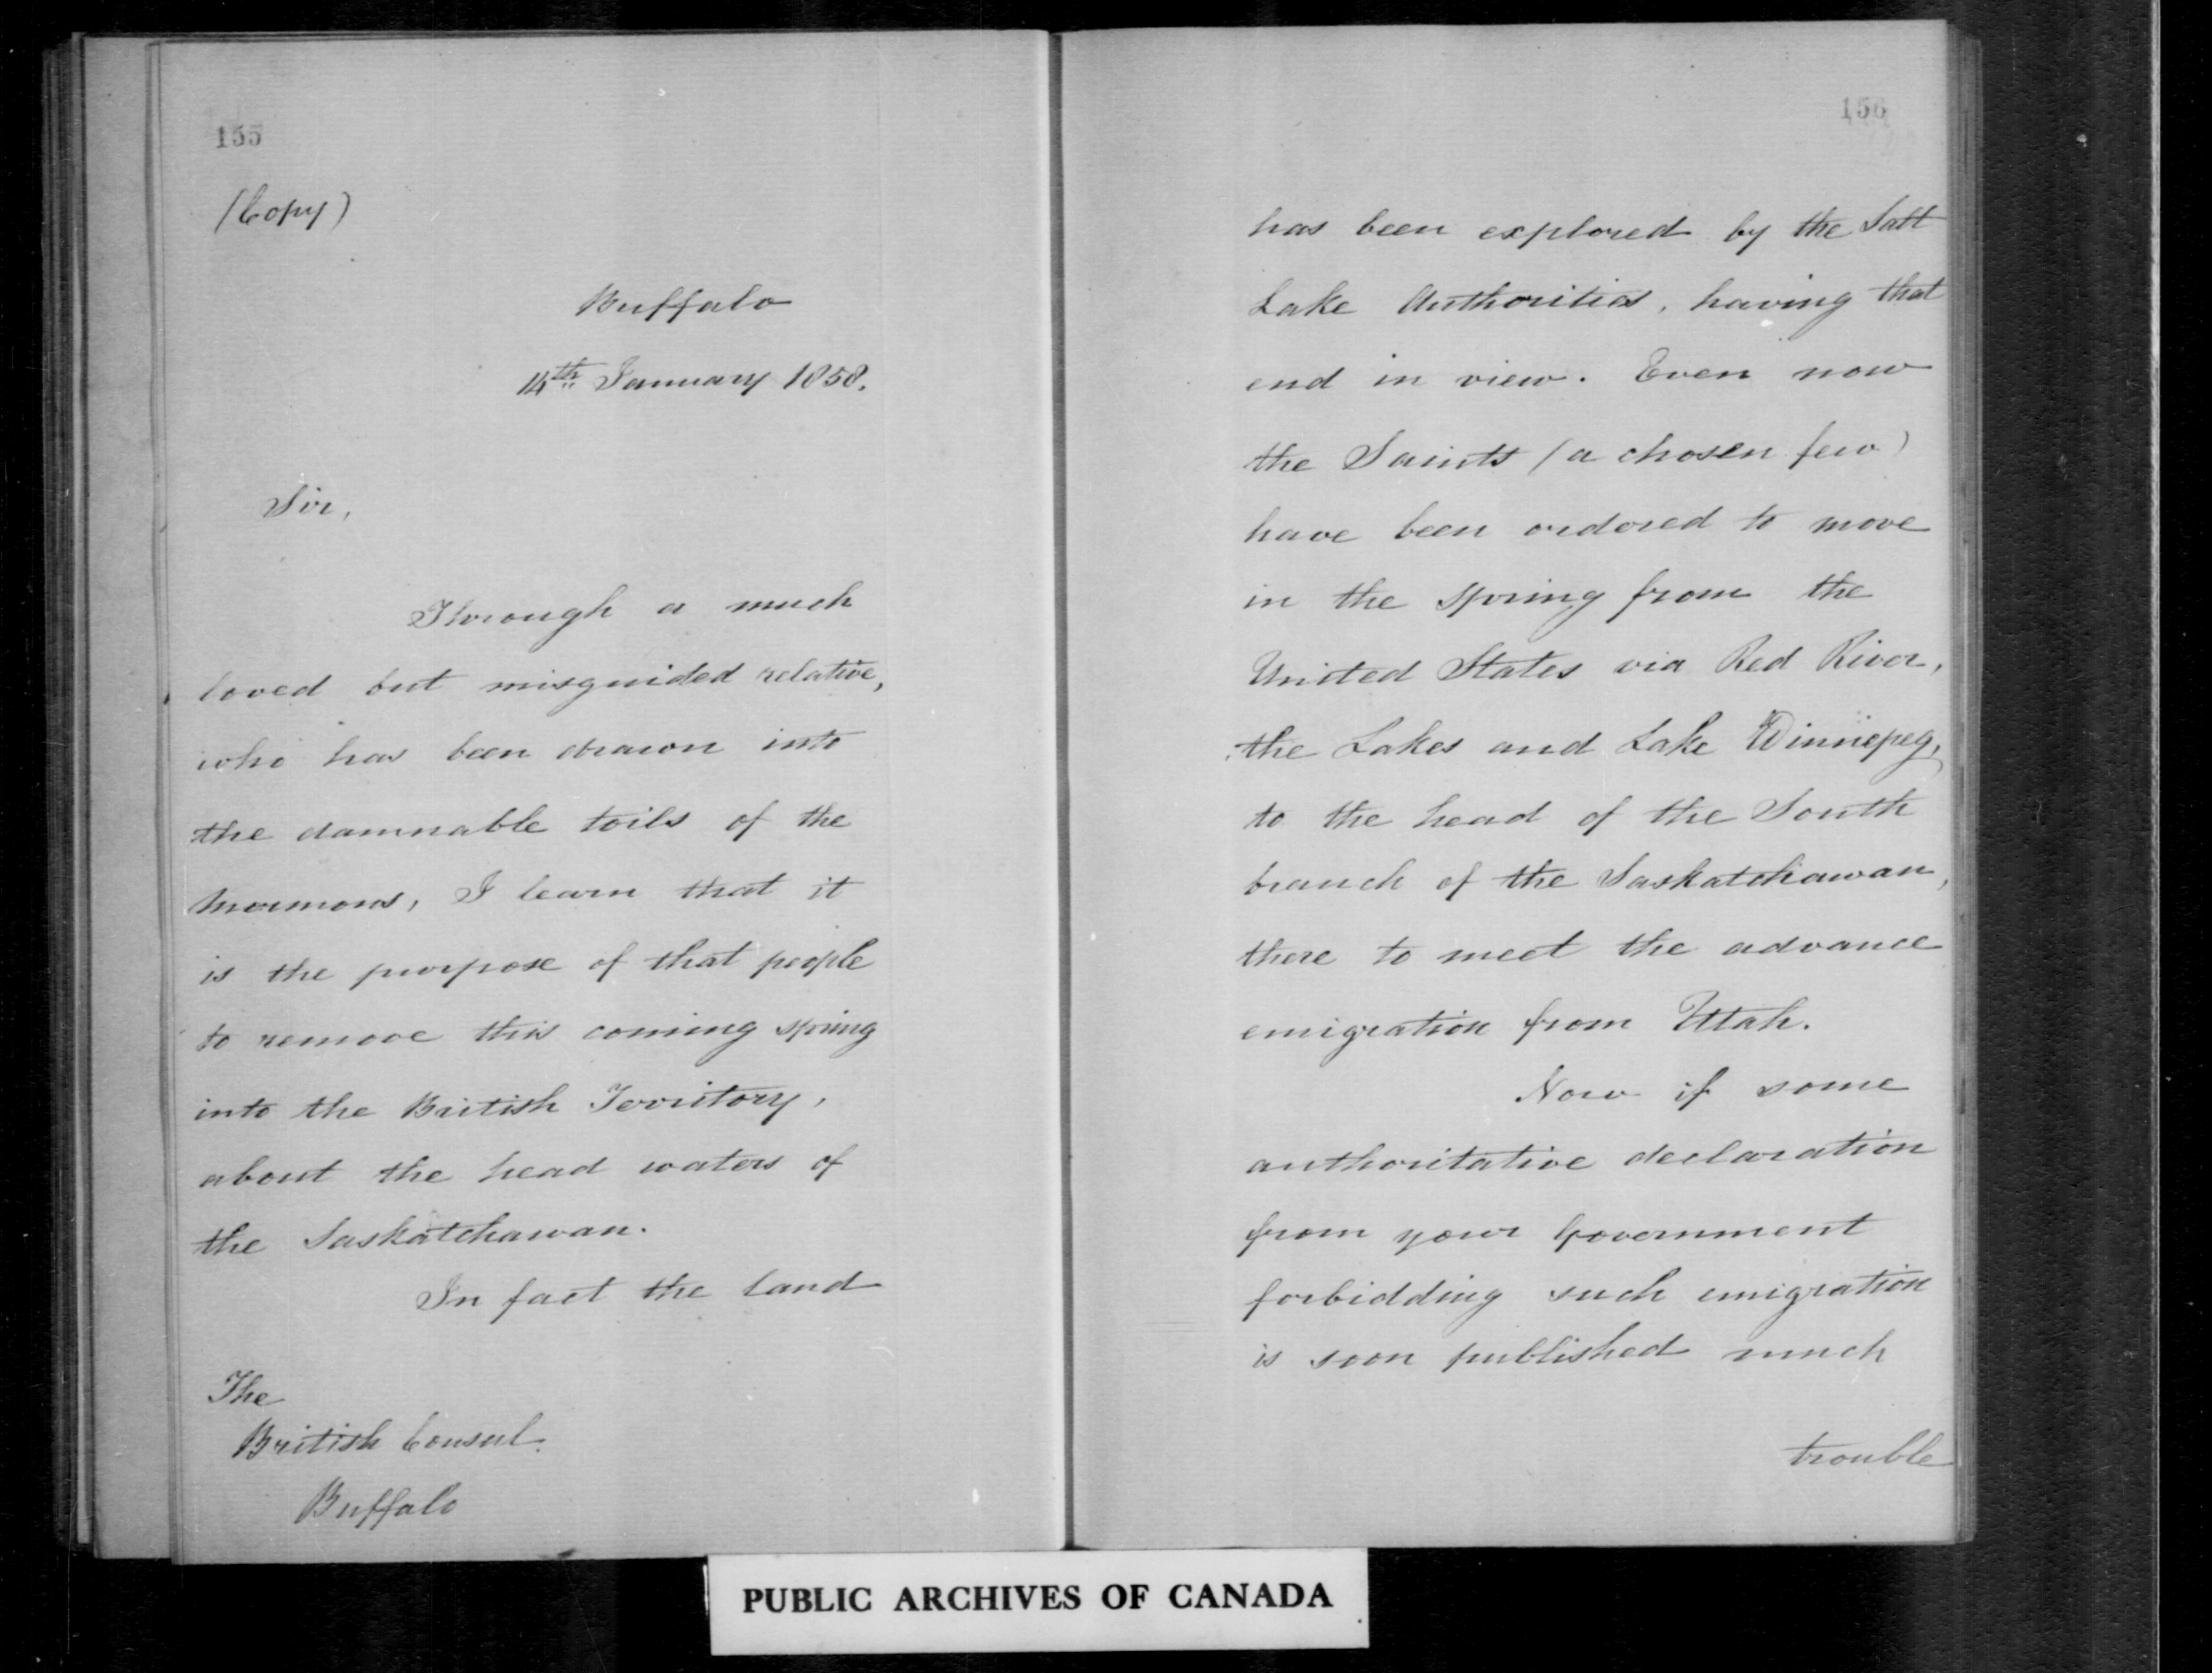 155
(Copy)
Buffalo
14th January 1858.
Sir,
Through a much
loved but misguided relative,
who has been drawn into
the damnable toils of the
Mormons, I learn that it
is the purpose of that people
to remove this coming spring
into the British Territory,
about the head waters of
the Saskatchawan.
In fact the land
The
British Consul.
Buffalo
156
has been explored by the Salt
Lake Authorities, having that
end in view. Even now
the Saints (a chosen few)
have been ordered to move
in the spring from the
United States via Red River,
the Lakes and Lake Winnepeg,
to the head of the South
branch of the Saskatchawan,
there to meet the advance
emigration from Utah.
Now if some
authoritative declaration
from your Government
forbidding such emigration
is soon published much
trouble
PUBLIC ARCHIVES OF CANADA